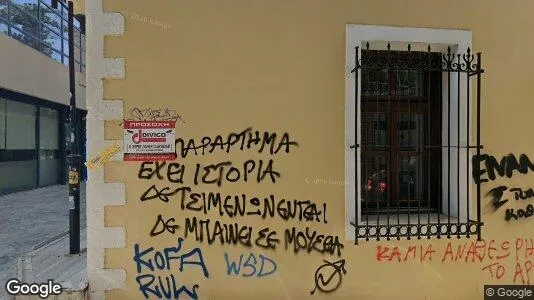 ΠΡΟΣΟΧΗ
DIVICO
ΠΑΡΑΡΤΗΜΑ
ΕΧΕΙ ΙΣΤΟΡΙΑ
ΔΕ ΤΣΙΜΕΝΩΝΕΝΤΕΑΙ
ΔΕ ΜΠΑΙΝΕΙ ΣΕ ΜΟΥΣΕΙΑ
ΚΟΓΑ
WSD
RUW
ΚΑΜΙΑ ΑΝΑΘΕΩΡΗ
ΤΟ ΑΡ
ΕΝΑΝ
Σ ΤΩΝ
Google
© Google